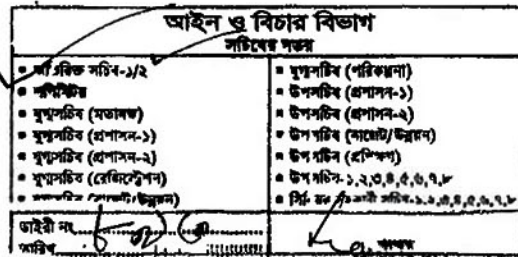 আইন ও বিচার বিভাগ
সচিবের দপ্তর
সচিব-১/২
সলিসিটর
যুগ্মসচিব (মতামত)
যুগ্মসচিব (প্রশাসন-১)
যুগ্মসচিব (প্রশাসন-২)
যুগ্মসচিব (রেজিস্ট্রেশন)
(বাজেট/উন্নয়ন)
যুগ্মসচিব (পরিকল্পনা)
উপসচিব (প্রশাসন-১)
উপসচিব (প্রশাসন-২)
উপসচিব (বাজেট/উন্নয়ন)
উপসচিব (প্রশিক্ষণ)
উপসচিব-১,২,৩,৪,৫,৬,৭,৮
সচিব-১,২,৩,৪,৫,৬,৭,৮
ডাইরী নং
তারিখ